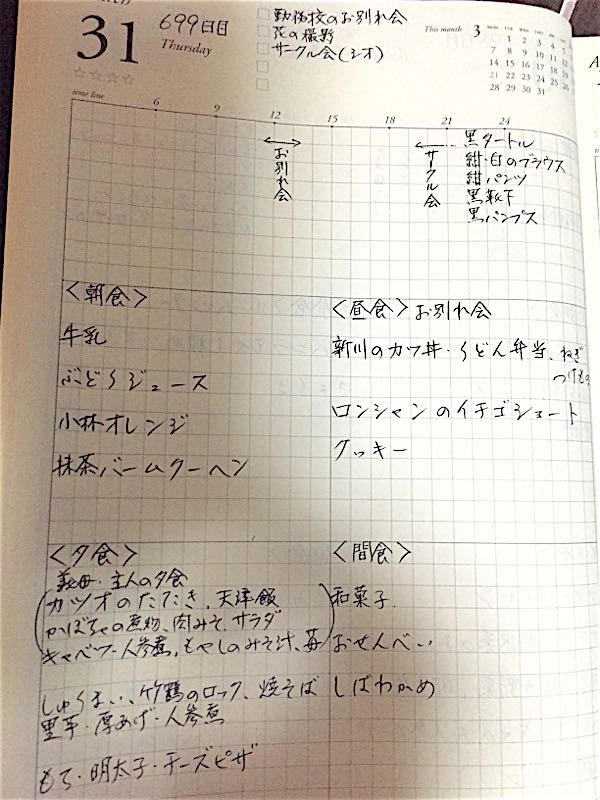 31
Thursday
699日目
勤務校のお別れ会
花の撮影
サークル会(シオ)
This month 3
MON TUE WED THU FRI SAT
1 2 3 4 5
7 8 9 10 11 12
14 15 16 17 18 19
21 22 23 24 25
28 29 30 31
time line
6 9 12 15 18 21 24
お別れ会
サークル会
黒タートル
紺・白のブラウス
紺パンツ
黒靴下
黒パンプス
<朝食>
牛乳
ぶどうジュース
小林オレンジ
抹茶バームクーヘン
<昼食>お別れ会
新川のカツ丼・うどん弁当、ねぎ
つけもの
ロンシャンのイチゴショート
クッキー
<夕食>
義母・主人の夕食
(カツオのたたき、天津飯
かぼちゃの煮物、肉みそ、サラダ
キャベツ・人参煮,もやしのみそ汁、苺)
しゅうまい、竹鶴のロック、焼そば
里芋・厚あげ・人参煮
もち・明太子・チーズピザ
<間食>
和菓子
おせんべい
しばわかめ